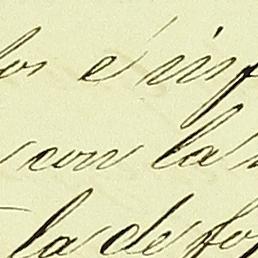 los é inf
con la
la de fo